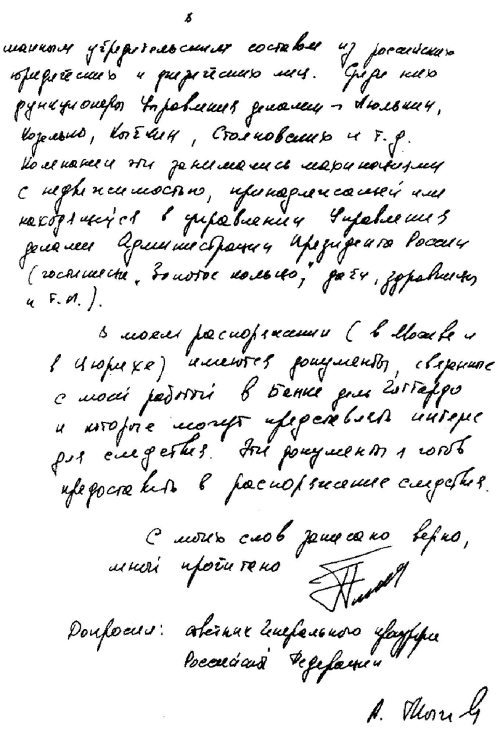 5
шанным учредительским составом из российских
юридических и физических лиц. Среди них
функционеры Управления делами - Люлькин,
Козелько, Кыткин, Столповских и т.д.
Компании эти занимались махинациями
с недвижимостью, принадлежащей или
находящейся в управлении Управления
делами Администрации Президента России
(гостиницы, "Золотое кольцо", дачи, здравницы
и т.п.).
В моем распоряжении (в Москве и
в Цюрихе) имеются документы, связанные
с моей работой в Банке дель Готтардо
и которые могут представлять интерес
для следствия. Эти документы я готов
предоставить в распоряжение следствия.
С моих слов записано верно,
мной прочитано
Допросил: советник Генерального прокурора
Российской Федерации